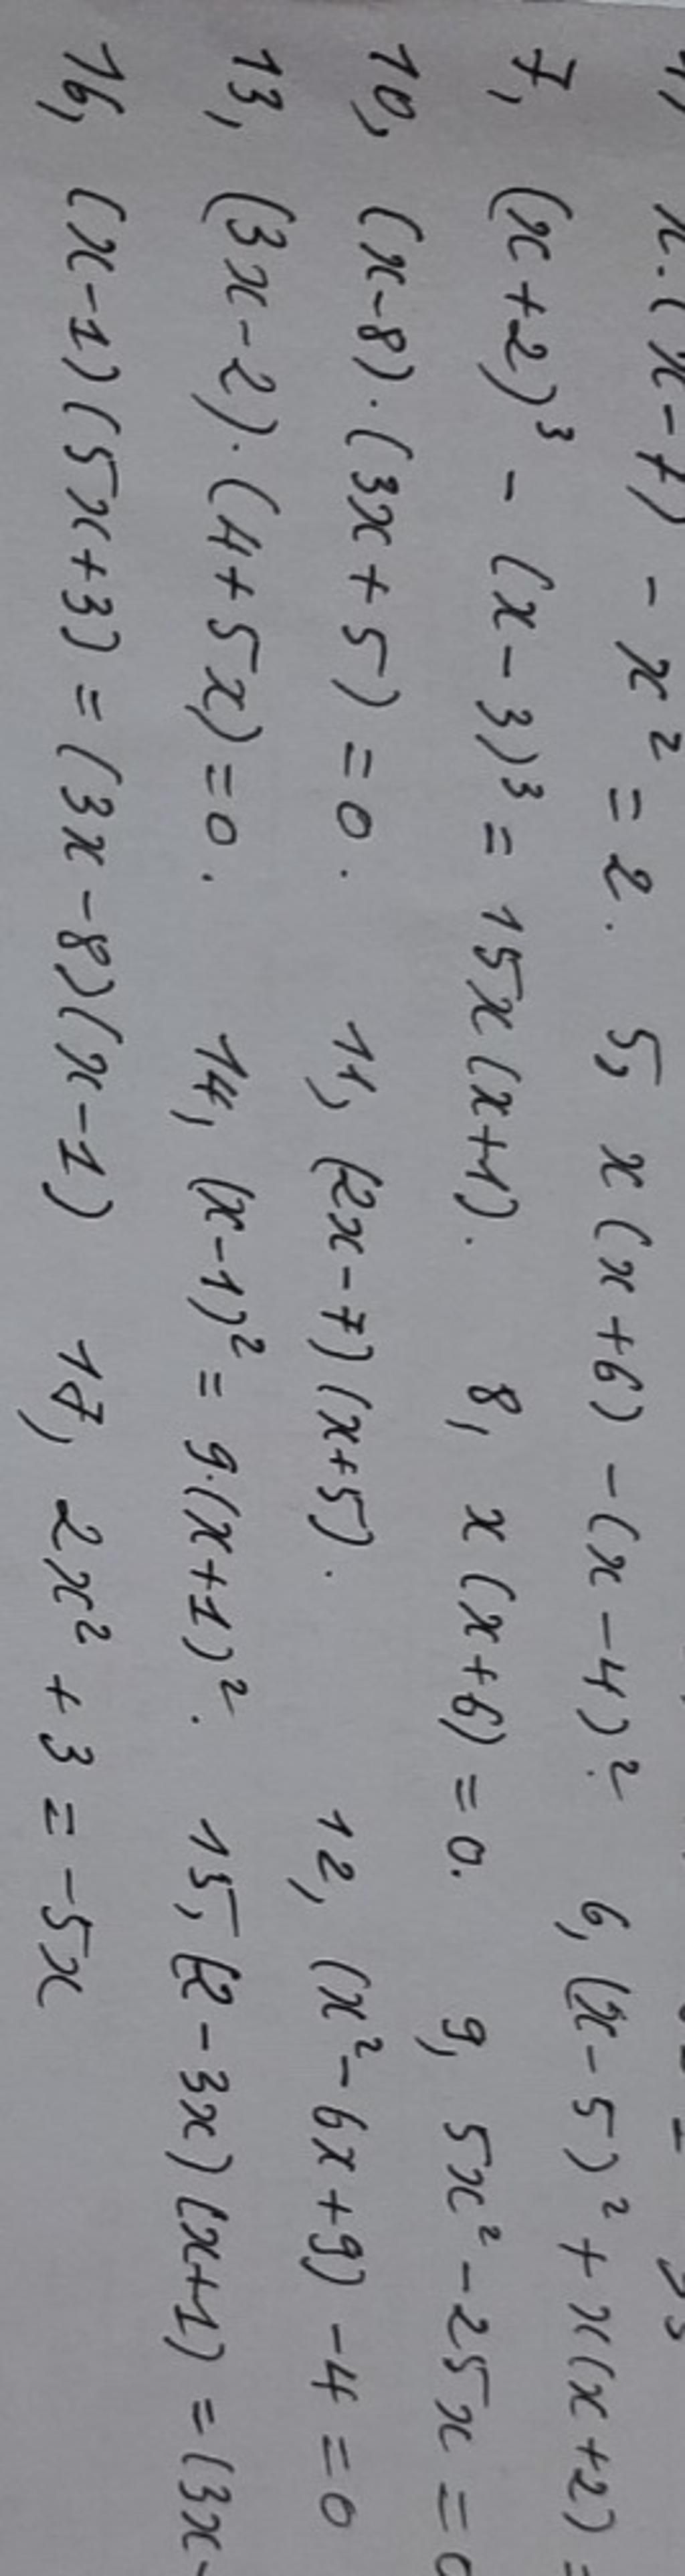 x.(x-7) - x² = 2. 5, x(x+6) - (x-4)². 6, (x-5)² + x(x+2) =
7, (x+2)³ - (x-3)³ = 15x(x+1). 8, x(x+6) = 0. 9, 5x² - 25x = 0
10, (x-8).(3x+5) = 0. 11, (2x-7)(x+5). 12, (x² - 6x + 9) - 4 = 0
13, (3x-2).(4+5x) = 0. 14, (x-1)² = 9.(x+1)². 15, (2-3x)(x+1) = (3x-
16, (x-1)(5x+3) = (3x-8)(x-1) 17, 2x² + 3 = -5x